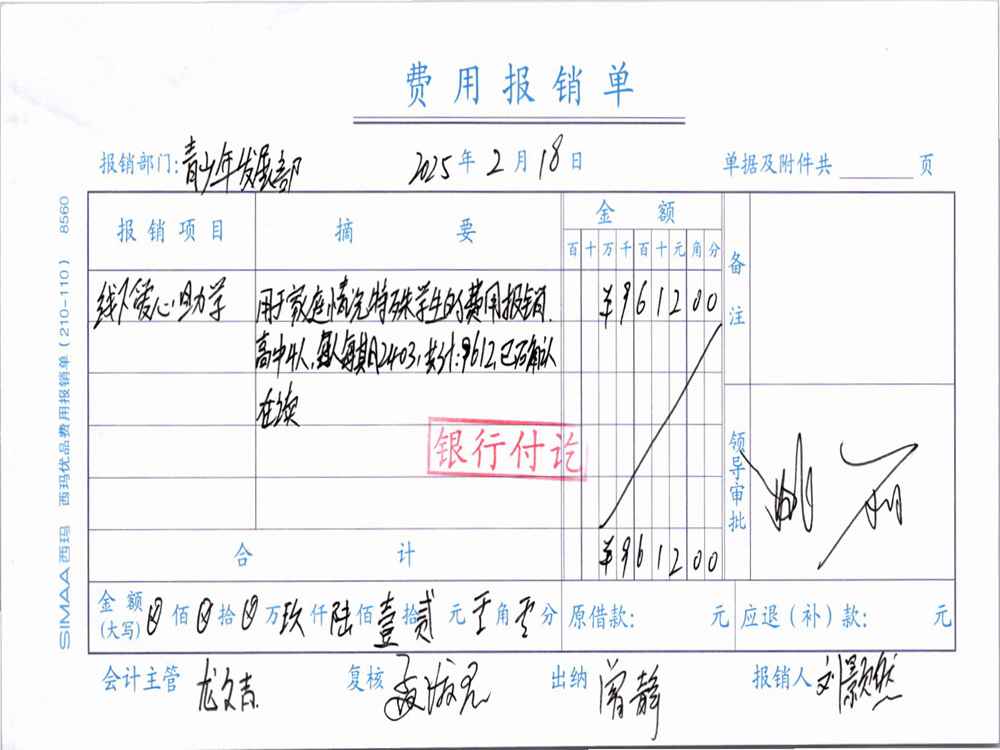 费用报销单
报销部门:青少年发展部 2025年2月18日 单据及附件共 页
报销项目 摘要 金额 备注
百十万千百十元角分
线下爱心助学 用于家庭情况特殊学生的费用报销. ¥961200
高中4人,每人每期2403,共计:9612,已确认
在续
银行付讫
领导审批
合计 ¥961200
金额(大写) 佰 拾 万玖仟陆佰壹拾贰元 角 分 原借款: 元 应退(补)款: 元
会计主管 龙文吉 复核 出纳 曾静 报销人 刘颢然
SIMAA西玛 西玛优品费用报销单(210-110) 8560